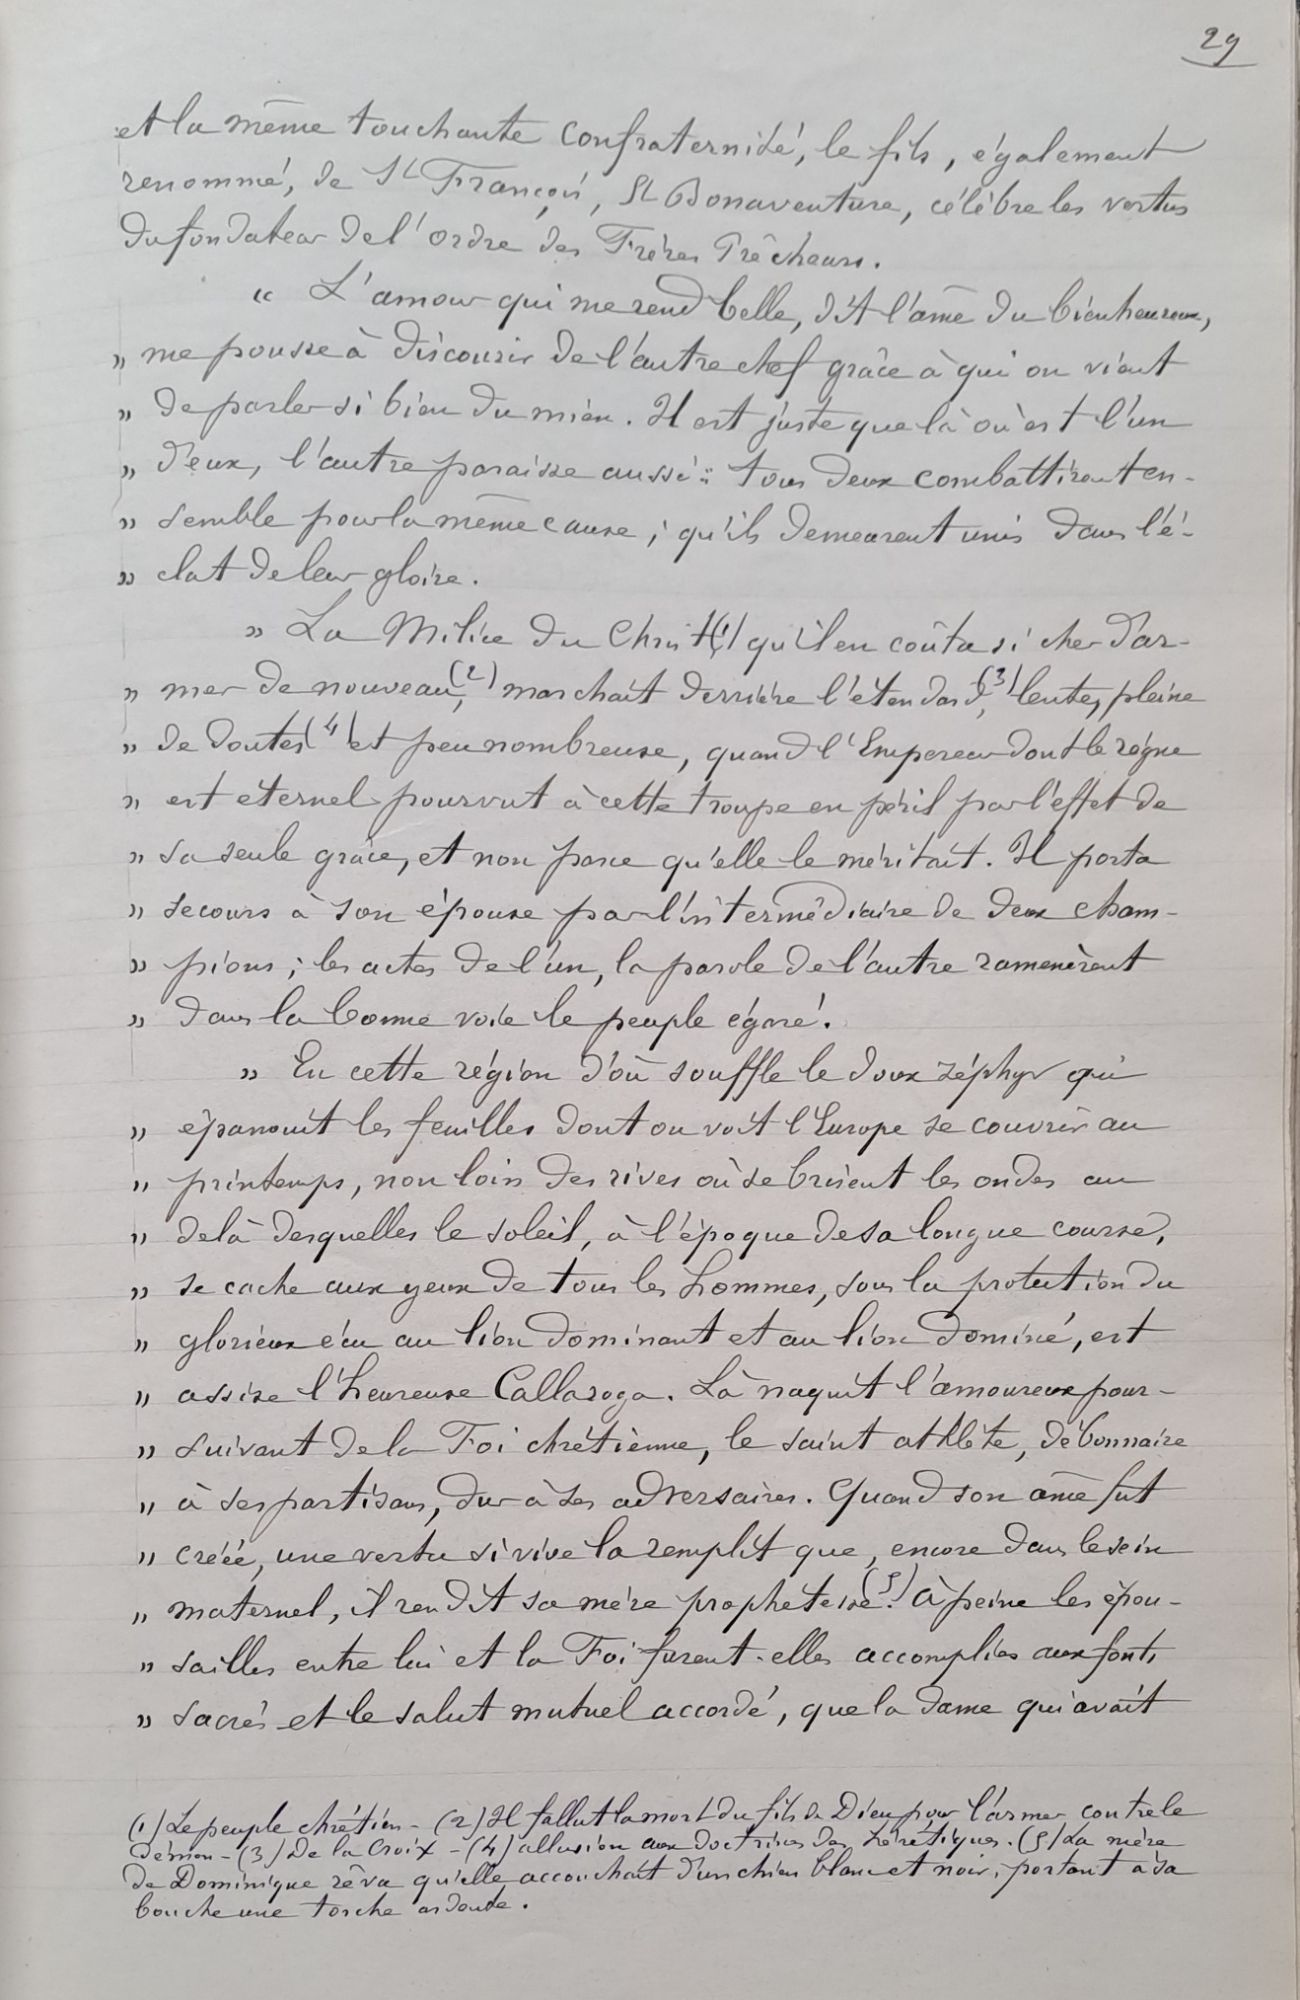 29
et la même touchante confraternité, le fils, également
renommé, de St François, St Bonaventure, célèbre les vertus
du fondateur de l'ordre des Frères Prêcheurs.
« L'amour qui me rend belle, dit l'âme du bienheureux,
» me pousse à discourir de l'autre chef grâce à qui on vient
» de parler si bien du mien. Il est juste que là où est l'un
» d'eux, l'autre paraisse aussi : tous deux combattirent en-
» semble pour la même cause ; qu'ils demeurent unis dans l'é-
» clat de leur gloire.
» La Milice du Christ (1) qu'il en coûta si cher d'ar-
» mer de nouveau (2), marchait derrière l'étendard (3), lente, pleine
» de doutes (4) et peu nombreuse, quand l'Empereur dont le règne
» est éternel pourvut à cette troupe en péril par l'effet de
» sa seule grâce, et non parce qu'elle le méritait. Il porta
» secours à son épouse par l'intermédiaire de deux cham-
» pions ; les actes de l'un, la parole de l'autre ramenèrent
» dans la bonne voie le peuple égaré.
» En cette région d'où souffle le doux zéphyr qui
» épanouit les feuilles dont on voit l'Europe se couvrir au
» printemps, non loin des rives où se brisent les ondes au
» delà desquelles le soleil, à l'époque de sa longue course,
» se cache aux yeux de tous les hommes, sous la protection du
» glorieux écu au lion dominant et au lion dominé, est
» assise l'heureuse Callaroga. Là naquit l'amoureux pour-
» suivant de la Foi chrétienne, le saint athlète, débonnaire
» à ses partisans, dur à ses adversaires. Quand son âme fut
» créée, une vertu si vive la remplit que, encore dans le sein
» maternel, il rendit sa mère prophétesse (5). À peine les épou-
» sailles entre lui et la Foi furent-elles accomplies aux fonts
» sacrés et le salut mutuel accordé, que la dame qui avait
(1) Le peuple chrétien - (2) Il fallut la mort du fils de Dieu pour l'armer contre le
démon - (3) De la Croix - (4) allusion aux doctrines des hérétiques. (5) La mère
de Dominique rêva qu'elle accouchait d'un chien blanc et noir, portant à sa
bouche une torche ardente.